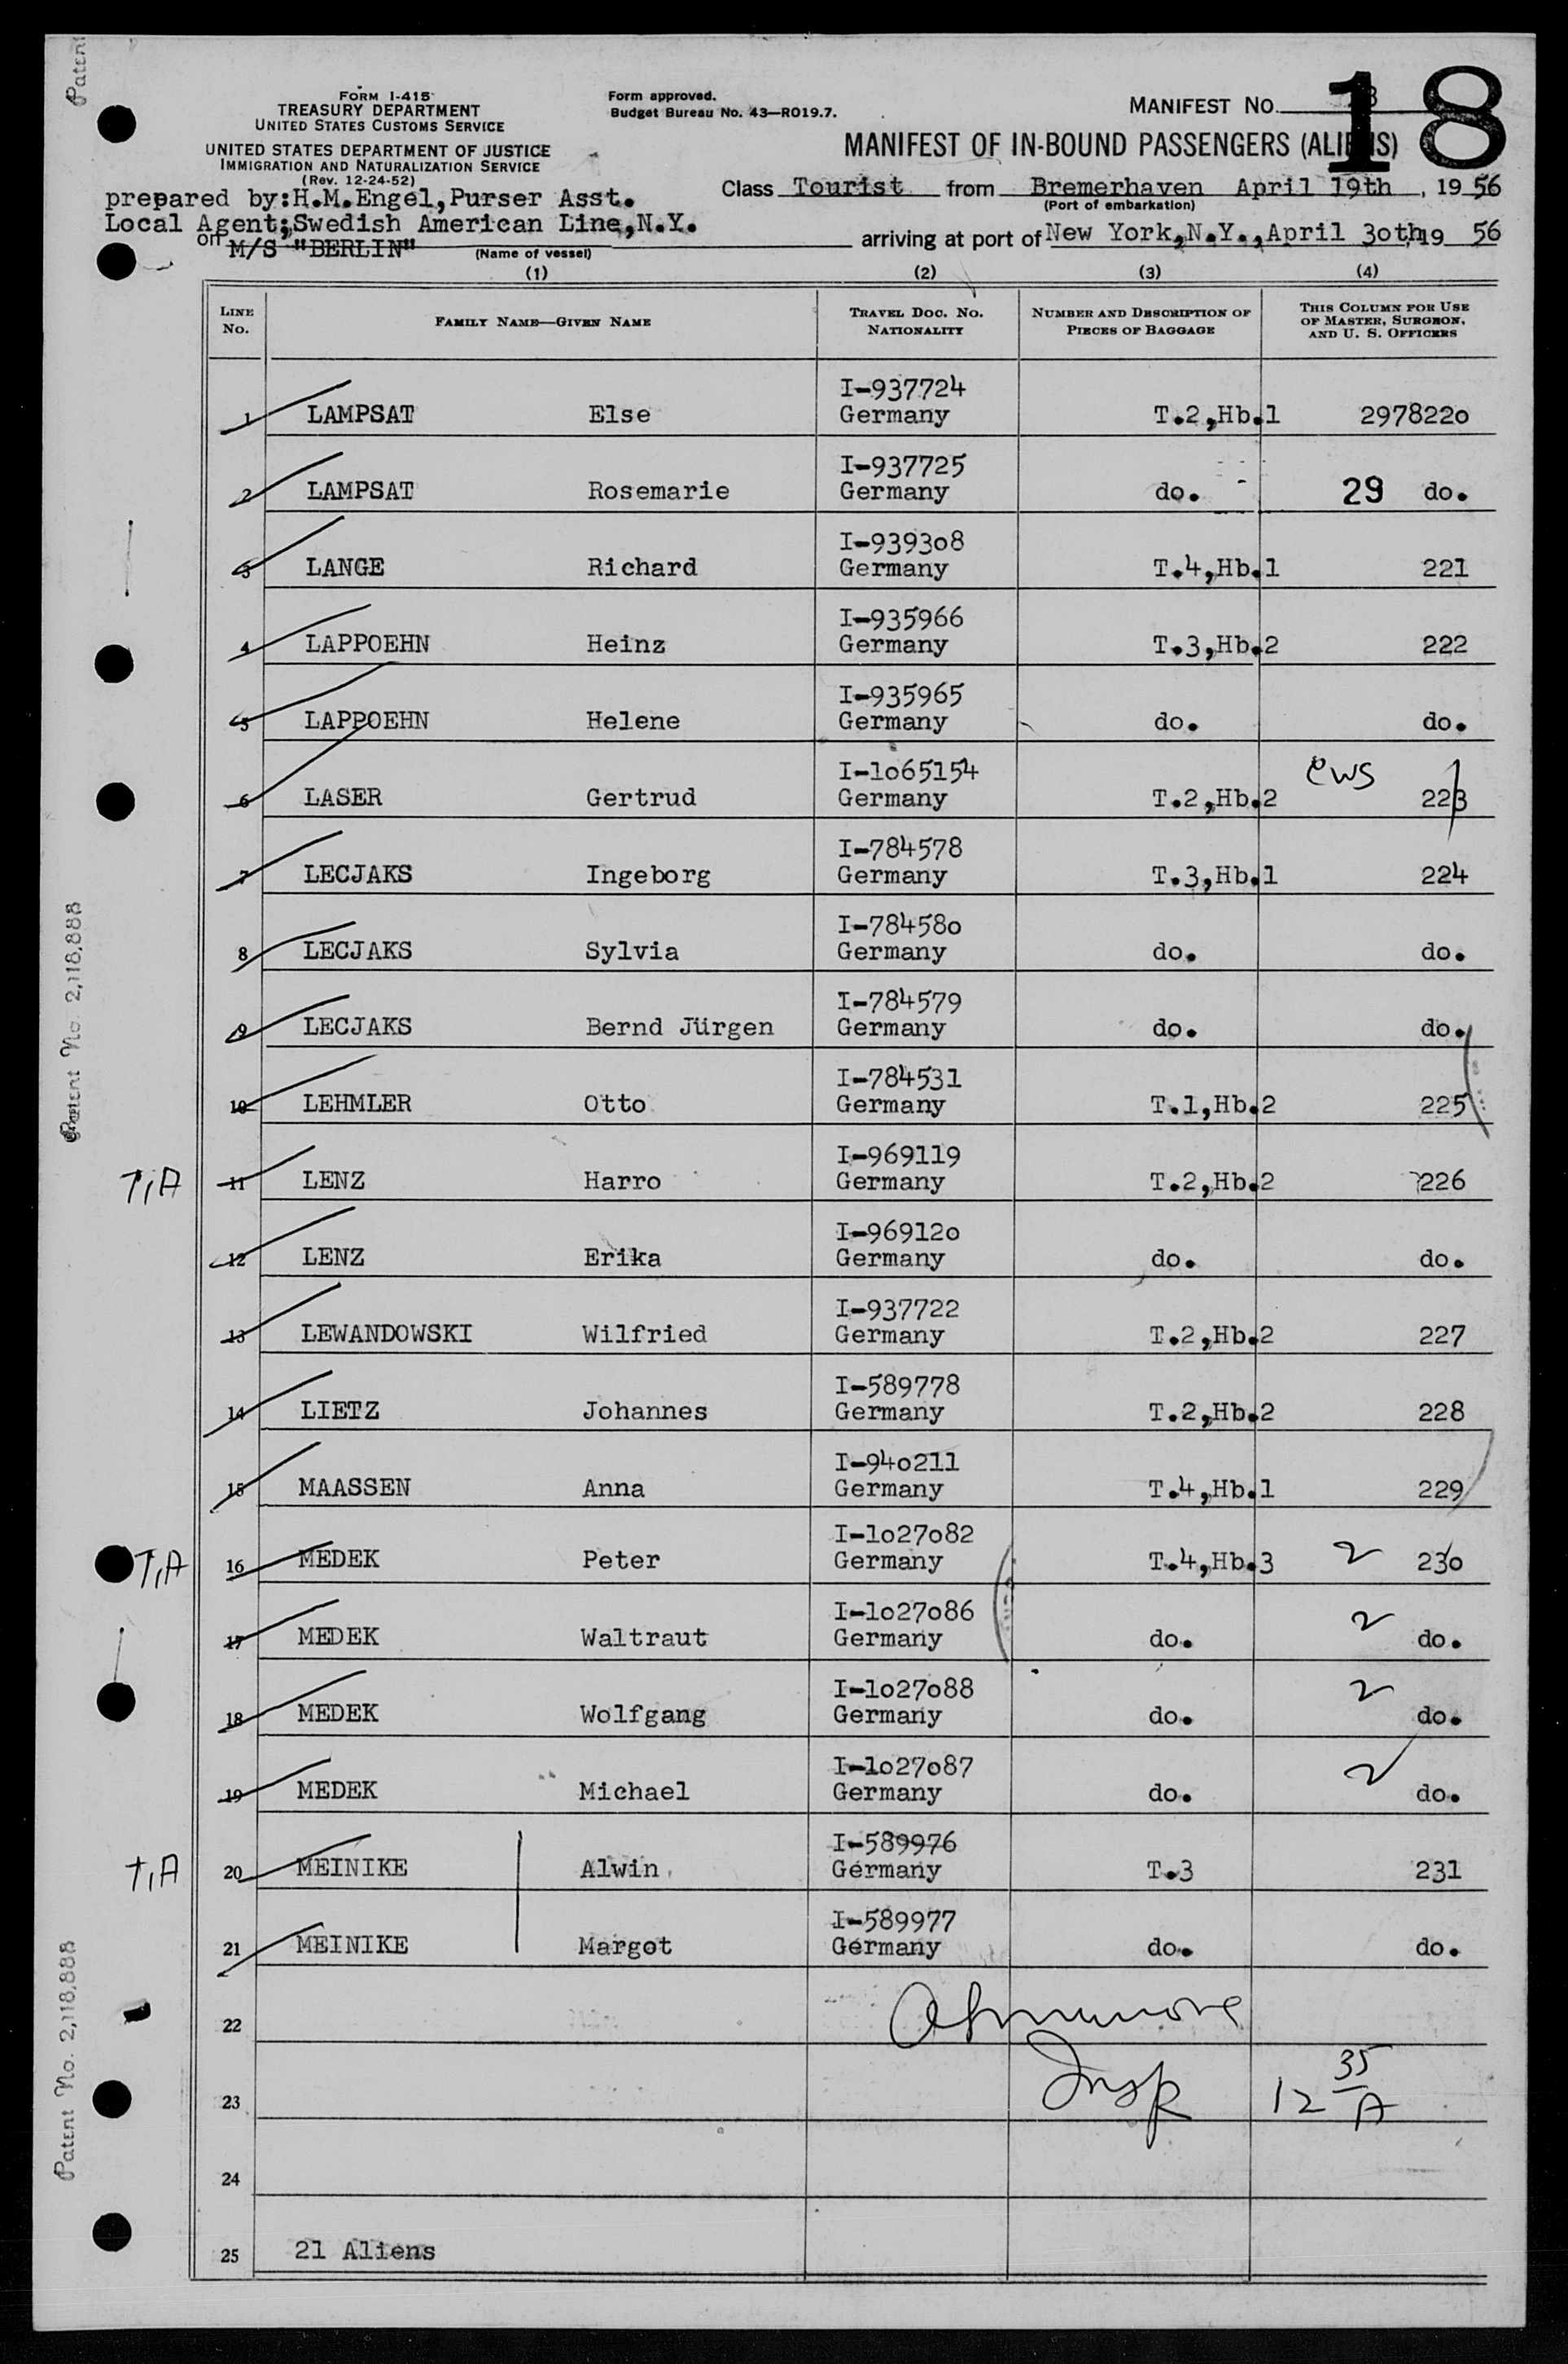 18
FORM I-415
TREASURY DEPARTMENT
UNITED STATES CUSTOMS SERVICE
UNITED STATES DEPARTMENT OF JUSTICE
IMMIGRATION AND NATURALIZATION SERVICE
(Rev. 12-24-52)
Form approved.
Budget Bureau No. 43—RO19.7.
MANIFEST NO.
MANIFEST OF IN-BOUND PASSENGERS (ALIENS)
prepared by:H.M.Engel,Purser Asst.
Class Tourist from Bremerhaven April 19th, 1956
(Port of embarkation)
Local Agent;Swedish American Line,N.Y.
on M/S "BERLIN"
(Name of vessel)
arriving at port of New York,N.Y.,April 3oth,19 56
(1) (2) (3) (4)
LINE No. FAMILY NAME—GIVEN NAME TRAVEL DOC. NO. NATIONALITY NUMBER AND DESCRIPTION OF PIECES OF BAGGAGE THIS COLUMN FOR USE OF MASTER, SURGEON, AND U. S. OFFICERS
I-937724
1 LAMPSAT Else Germany T.2,Hb.1 297822o
I-937725
2 LAMPSAT Rosemarie Germany do. 29 do.
I-9393o8
3 LANGE Richard Germany T.4,Hb.1 221
I-935966
4 LAPPOEHN Heinz Germany T.3,Hb.2 222
I-935965
5 LAPPOEHN Helene Germany do. do.
I-1o65154 ews
6 LASER Gertrud Germany T.2,Hb.2 223
I-784578
7 LECJAKS Ingeborg Germany T.3,Hb.1 224
I-78458o
8 LECJAKS Sylvia Germany do. do.
I-784579
9 LECJAKS Bernd Jürgen Germany do. do.
I-784531
10 LEHMLER Otto Germany T.1,Hb.2 225
I-969119
T,A 11 LENZ Harro Germany T.2,Hb.2 226
I-96912o
12 LENZ Erika Germany do. do.
I-937722
13 LEWANDOWSKI Wilfried Germany T.2,Hb.2 227
I-589778
14 LIETZ Johannes Germany T.2,Hb.2 228
I-94o211
15 MAASSEN Anna Germany T.4,Hb.1 229
I-1o27o82
T,A 16 MEDEK Peter Germany T.4,Hb.3 2 23o
I-1o27o86
17 MEDEK Waltraut Germany do. 2 do.
I-1o27o88
18 MEDEK Wolfgang Germany do. 2 do.
I-1o27o87
19 MEDEK Michael Germany do. 2 do.
I-589976
T,A 20 MEINIKE Alwin Germany T.3 231
I-589977
21 MEINIKE Margot Germany do. do.
22
23 Insp 12 35 A
24
25 21 Aliens
Patent No. 2,118,888
Patent No. 2,118,888
Patent